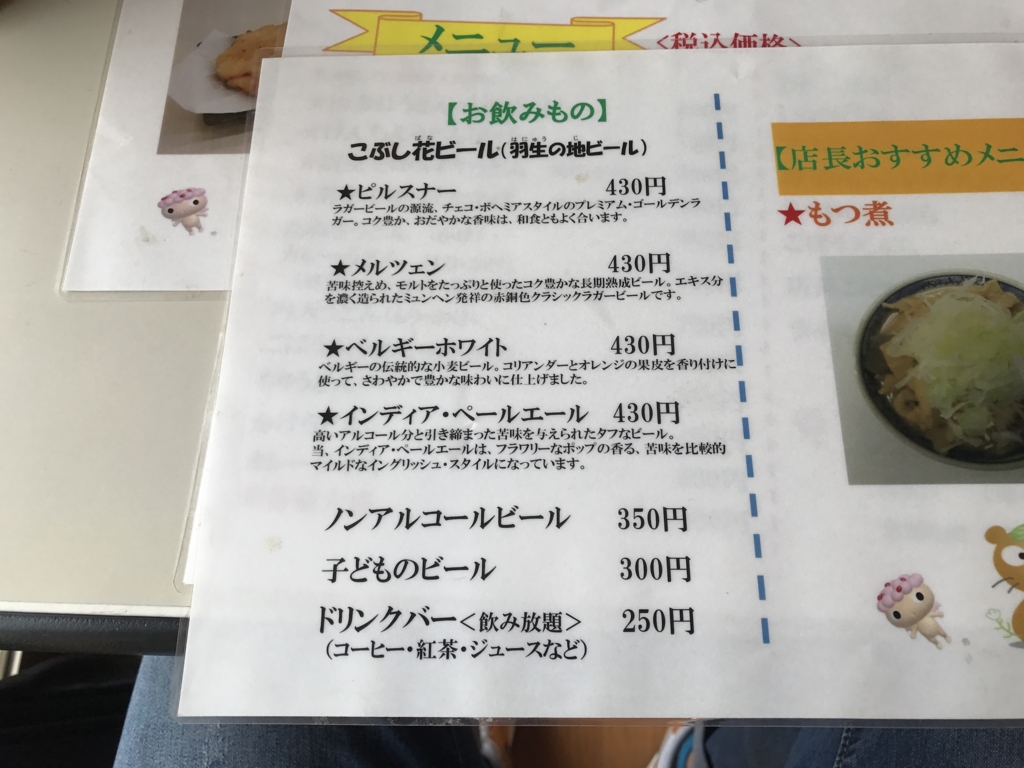 メニュー
<税込価格>
【お飲みもの】
こぶし花ビール(羽生の地ビール)
ばな
はにゅう
じ
★ピルスナー 430円
ラガービールの源流、チェコ・ボヘミアスタイルのプレミアム・ゴールデンラ
ガー。コク豊か、おだやかな香味は、和食ともよく合います。
★メルツェン 430円
苦味控えめ、モルトをたっぷりと使ったコク豊かな長期熟成ビール。エキス分
を濃く造られたミュンヘン発祥の赤銅色クラシックラガービールです。
★ベルギーホワイト 430円
ベルギーの伝統的な小麦ビール。コリアンダーとオレンジの果皮を香り付けに
使って、さわやかで豊かな味わいに仕上げました。
★インディア・ペールエール 430円
高いアルコール分と引き締まった苦味を与えられたタフなビール。
当、インディア・ペールエールは、フラワリーなホップの香る、苦味を比較的
マイルドなイングリッシュ・スタイルになっています。
ノンアルコールビール 350円
子どものビール 300円
ドリンクバー<飲み放題> 250円
(コーヒー・紅茶・ジュースなど)
【店長おすすめメニ
★もつ煮